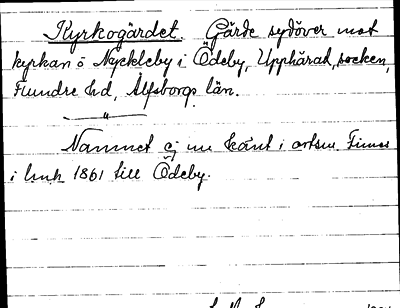 Kyrkogärdet. Gärde sydöver mot
kyrkan å Nyckleby i Ödeby, Upphärad, socken,
Flundre hd, Älfsborgs län.
"
Namnet ej nu känt i orten. Finnes
i lmh 1861 till Ödeby.